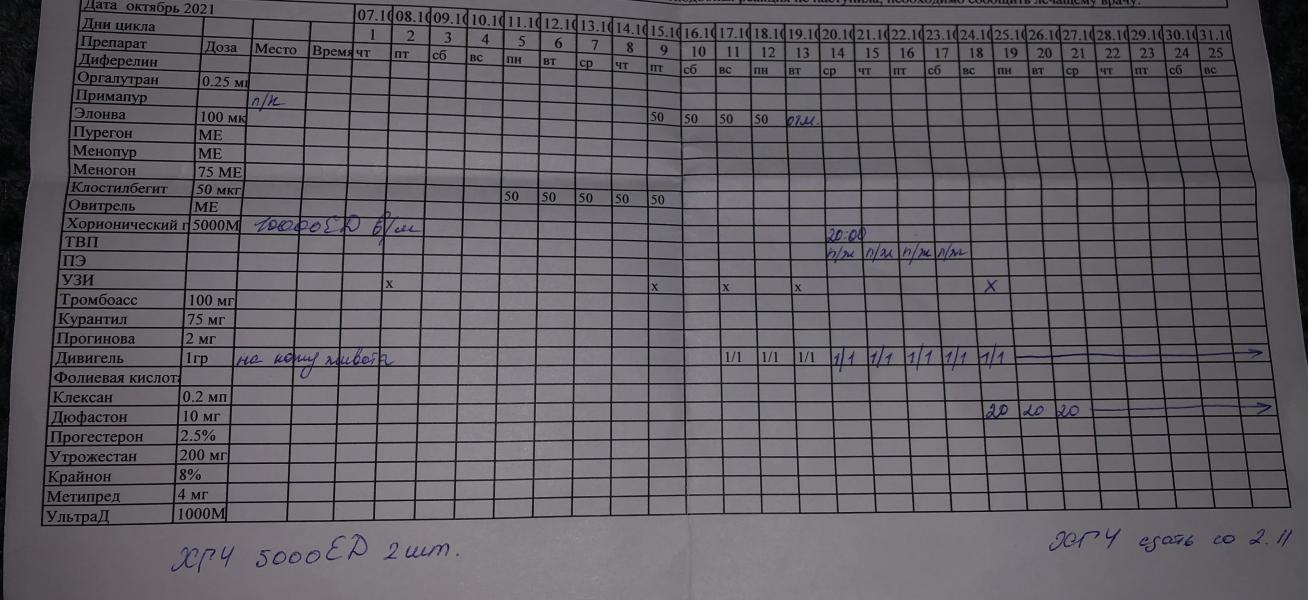 подобная реакция не наступила, необходимо сообщить лечащему врачу.
Дата октябрь 2021 07.10 08.10 09.10 10.10 11.10 12.10 13.10 14.10 15.10 16.10 17.10 18.10 19.10 20.10 21.10 22.10 23.10 24.10 25.10 26.10 27.10 28.10 29.10 30.10 31.10
Дни цикла 1 2 3 4 5 6 7 8 9 10 11 12 13 14 15 16 17 18 19 20 21 22 23 24 25
Препарат Доза Место Время чт пт сб вс пн вт ср чт пт сб вс пн вт ср чт пт сб вс пн вт ср чт пт сб вс
Диферелин
Оргалутран 0.25 мг
Примапур п/к
Элонва 100 мк 50 50 50 50 отм.
Пурегон МЕ
Менопур МЕ
Меногон 75 МЕ
Клостилбегит 50 мкг 50 50 50 50 50
Овитрель МЕ
Хорионический г 5000М 10000ЕД в/м 20:00
ТВП п/ж п/ж п/ж п/ж
ПЭ
УЗИ х х х х х
Тромбоасс 100 мг
Курантил 75 мг
Прогинова 2 мг
Дивигель 1гр на кожу живота 1/1 1/1 1/1 1/1 1/1 1/1 1/1 1/1
Фолиевая кислота
Клексан 0.2 мп
Дюфастон 10 мг 20 20 20
Прогестерон 2.5%
Утрожестан 200 мг
Крайнон 8%
Метипред 4 мг
УльтраД 1000М
ХГЧ 5000ЕД 2 шт.
ХГЧ сдать со 2.11